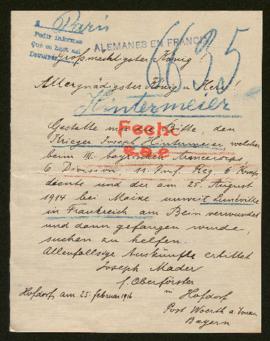 a Paris
Pedir informes
ALEMANES EN FRANCIA
6635
Großmächtigster König
Allergnädigster König u. Herr!
Hintermeier
Gestatte mir die Bitte den
Krieger Joseph Hintermeier, welcher
beim III. bayrischen Armeecorps
6 Division 11 Inf. Reg. 6 Komp
diente und der am 25. August
1914 bei Maixe unweit Luneville
in Frankreich am Bein verwundet
und dann gefangen wurde,
suchen zu helfen.
Allenfallsige Auskünfte erbittet
Joseph Mader
Oberförster
in Hofdorf
Hofdorf am 25. Februar 1916
Post Woerth a. Isar
Bayern